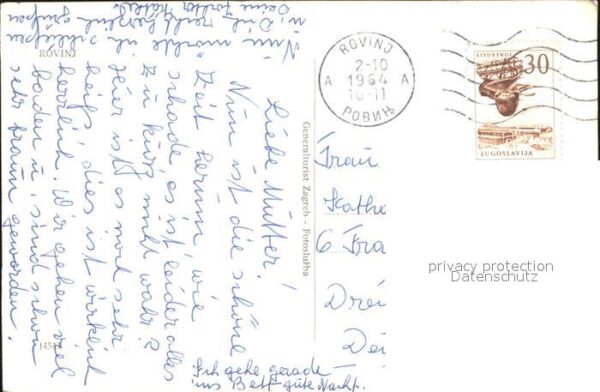 ROVINJ
Liebe Mutter!
Nun ist die schöne
Zeit herum, wie
schade, es ist leider alles
zu kurz, nicht wahr?
Hier ist es noch sehr
heiß, dies ist wirklich
herrlich. Wir gehen viel
baden u. sind schon
sehr braun geworden.
Nun möchte ich schließen
u. Dich recht herzlich grüßen
Deine
Ich gehe gerade
ins Bett gute Nacht.
14542
Generalturist Zagreb - Fotoslužba
ROVINJ
2-10
1964
10-11
A A
РОВИЊ
LITOSTROJ
30
JUGOSLAVIJA
Frau
Kathe
6 Fra
Drei
Dei
privacy protection
Datenschutz